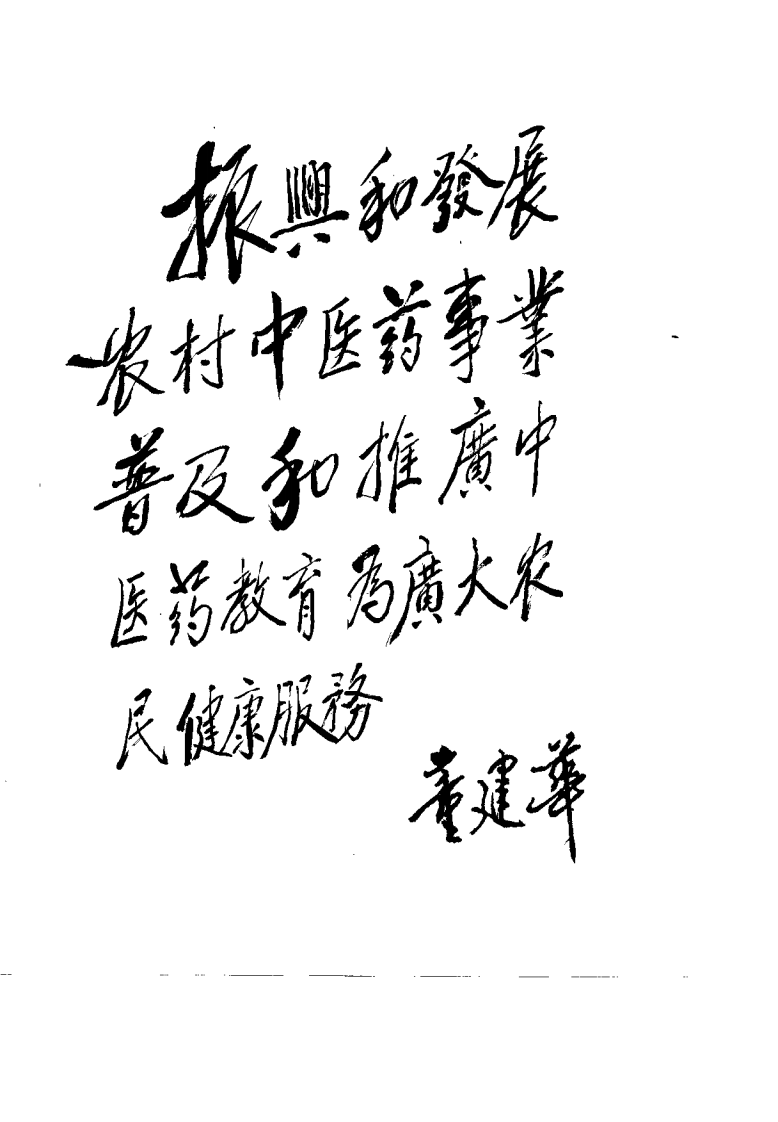 振興和發展
农村中医药事業
普及和推廣中
医药教育為廣大农
民健康服務
董建華